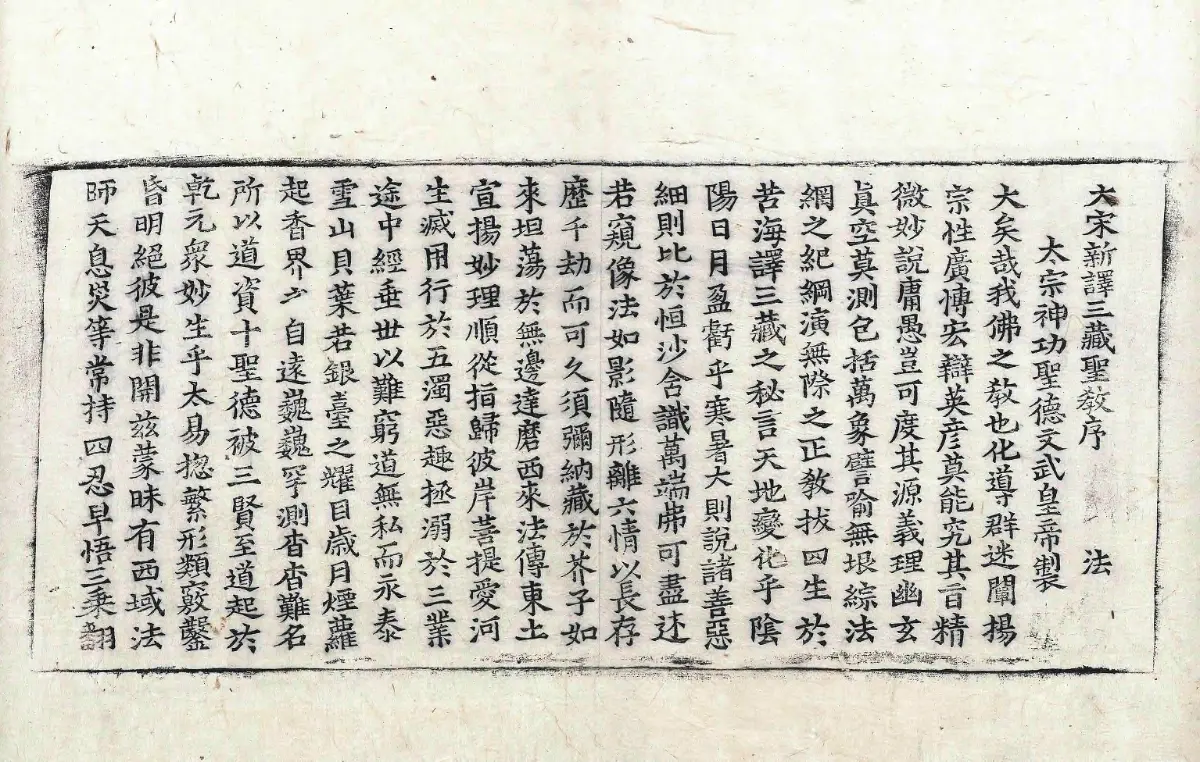 大宋新譯三藏聖敎序 法
太宗神功聖德文武皇帝製
大矣哉我佛之敎也化導群迷闡揚
宗性廣博宏辯英彦莫能究其旨精
微妙說庸愚豈可度其源義理幽玄
眞空莫測包括萬象譬喻無垠綜法
網之紀綱演無際之正敎拔四生於
苦海譯三藏之秘言天地變化乎陰
陽日月盈虧乎寒暑大則說諸善惡
細則比於恒沙含識萬端弗可盡述
若窺像法如影隨形離六情以長存
歷千劫而可久須彌納藏於芥子如
來坦蕩於無邊達磨西來法傳東土
宣揚妙理順從指歸彼岸菩提愛河
生滅用行於五濁惡趣拯溺於三業
途中經垂世以難窮道無私而永泰
雪山貝葉若銀臺之耀目歲月煙蘿
起香界之自遠巍巍罕測杳杳難名
所以道資十聖德被三賢至道起於
乾元衆妙生乎太易揔繁形類竅鑿
昏明絕彼是非開茲蒙昧有西域法
師天息災等常持四忍早悟三乘翻